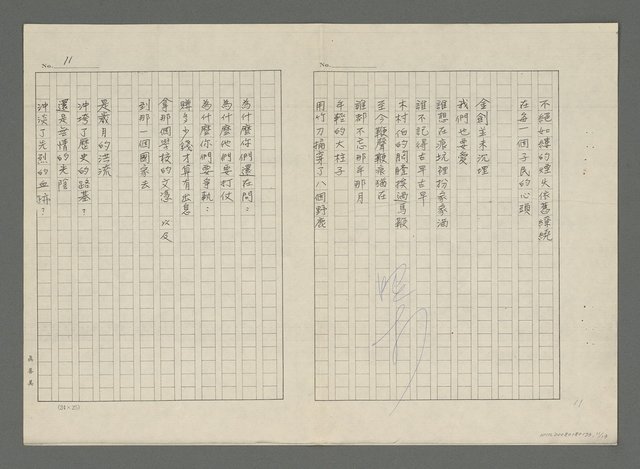 No.
不絕如縷的煙火依舊繚繞
在每一個子民的心頭
金創並未沉埋
我們也要愛
誰想在痕坑裡扮家家酒
誰不記得古早古早
木村伯的胸膛挨過馬鞭
至今鞭聲鞭痕猶在
誰都不忘那年那月
年輕的大柱子
用竹刀捅穿了八個野鹿
11
No. 11
為什麼你們還在問：
為什麼他們要打仗
為什麼你們要爭執：
賺多少錢才算有出息
拿那個學校的文憑 以及
到那一個國家去
是歲月的洪流
沖垮了歷史的路基？
還是無情的光陰
沖淡了先烈的血跡？
(24×25)